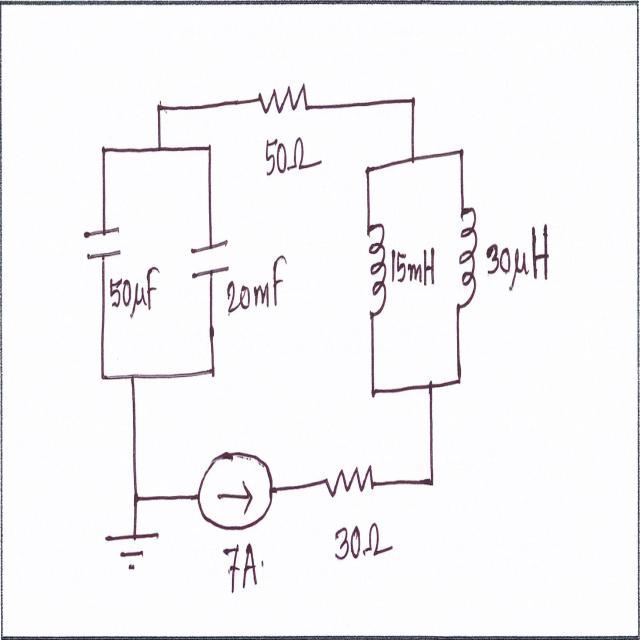 50Ω
50μf
20mf
15mH
30μH
7A.
30Ω